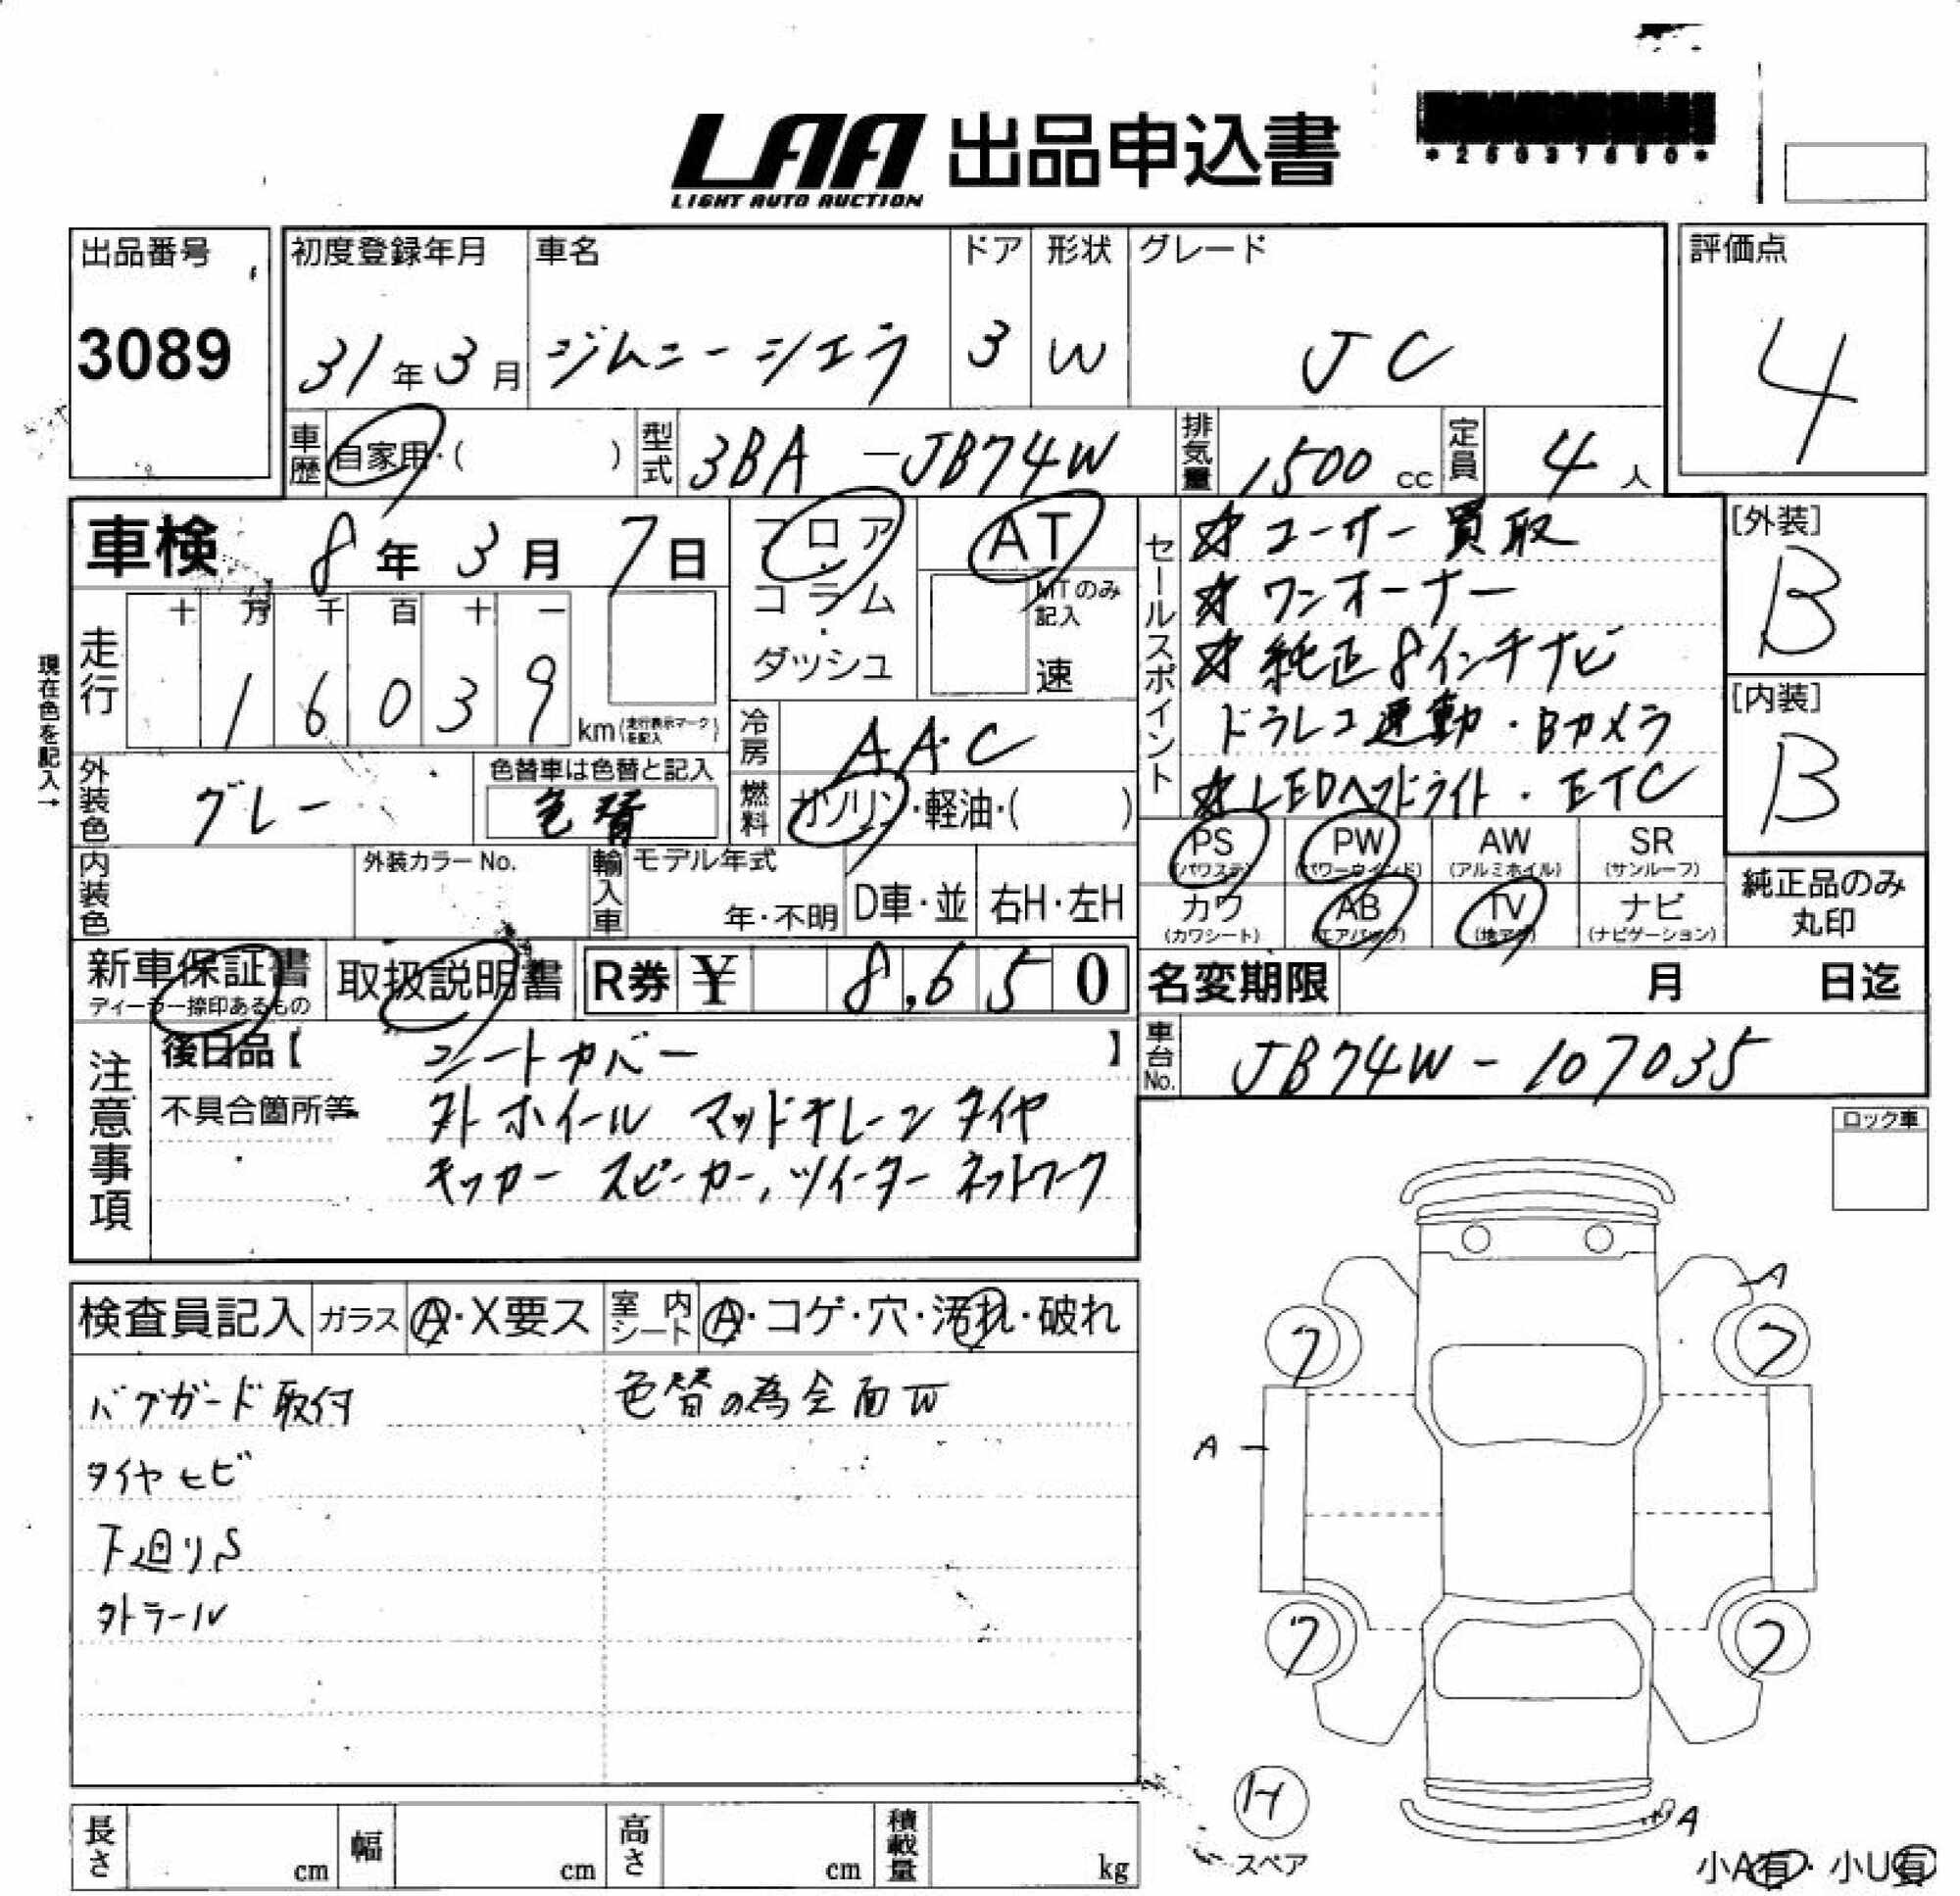 LAA 出品申込書
LIGHT AUTO AUCTION
*25037690*
出品番号
3089
初度登録年月
31年3月
車名
ジムニーシエラ
ドア
3
形状
W
グレード
JC
評価点
4
車歴
自家用・( )
型式
3BA -JB74W
排気量
1500 cc
定員
4 人
車検 8年3月7日
フロア・コラム・ダッシュ
AT
MTのみ記入
速
現在色を記入→
走行
十 万 千 百 十 一
1 6 0 3 9
km(走行表示マークを記入)
冷房
AAC
外装色
グレー
色替車は色替と記入
色替
燃料
ガソリン・軽油・( )
内装色
外装カラーNo.
輸入車
モデル年式
年・不明
D車・並
右H・左H
セールスポイント
☆ユーザー買取
☆ワンオーナー
☆純正8インチナビ
ドラレコ連動・Bカメラ
☆LEDヘッドライト・ETC
[外装]
B
[内装]
B
PS
(パワステ)
PW
(パワーウインド)
AW
(アルミホイル)
SR
(サンルーフ)
カワ
(カワシート)
AB
(エアバッグ)
TV
(地デジ)
ナビ
(ナビゲーション)
純正品のみ
丸印
新車保証書
ディーラー捺印あるもの
取扱説明書
R券 ¥ 8,650
名変期限 月 日迄
車台No.
JB74W-107035
注意事項
後日品【 シートカバー 】
不具合箇所等 外ホイール マッドテレーンタイヤ
キッカー スピーカー,ツイーター ネットワーク
ロック車
検査員記入
ガラス
A・X要ス
室内シート
A・コゲ・穴・汚れ・破れ
バグガード取付
色替の為全面W
タイヤヒビ
下廻りS
外ラール
A
7 7
A
7 7
14
スペア
A
小A有・小U有
長さ cm
幅 cm
高さ cm
積載量 kg